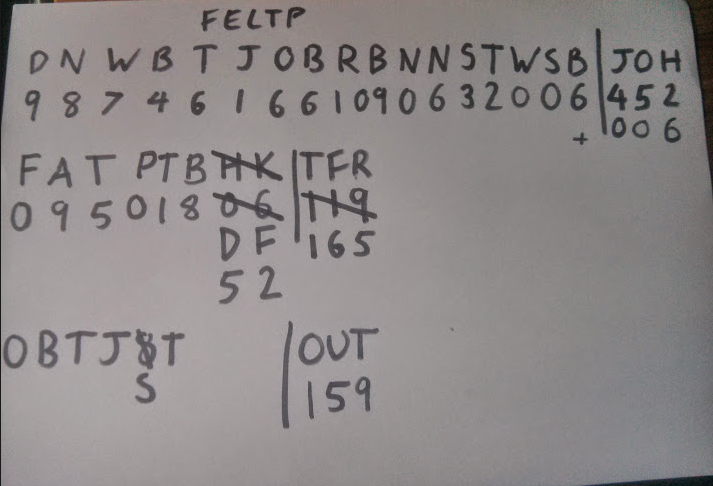 FELTP
D N W B T J O B R B N N S T W S B | J O H
9 8 7 4 6 1 6 6 1 0 9 0 6 3 2 0 0 6 | 4 5 2
+ 0 0 6
F A T P T B H K | T F R
0 9 5 0 1 8 0 6 | 1 1 9
D F | 1 6 5
5 2
O B T J T | O U T
S | 1 5 9